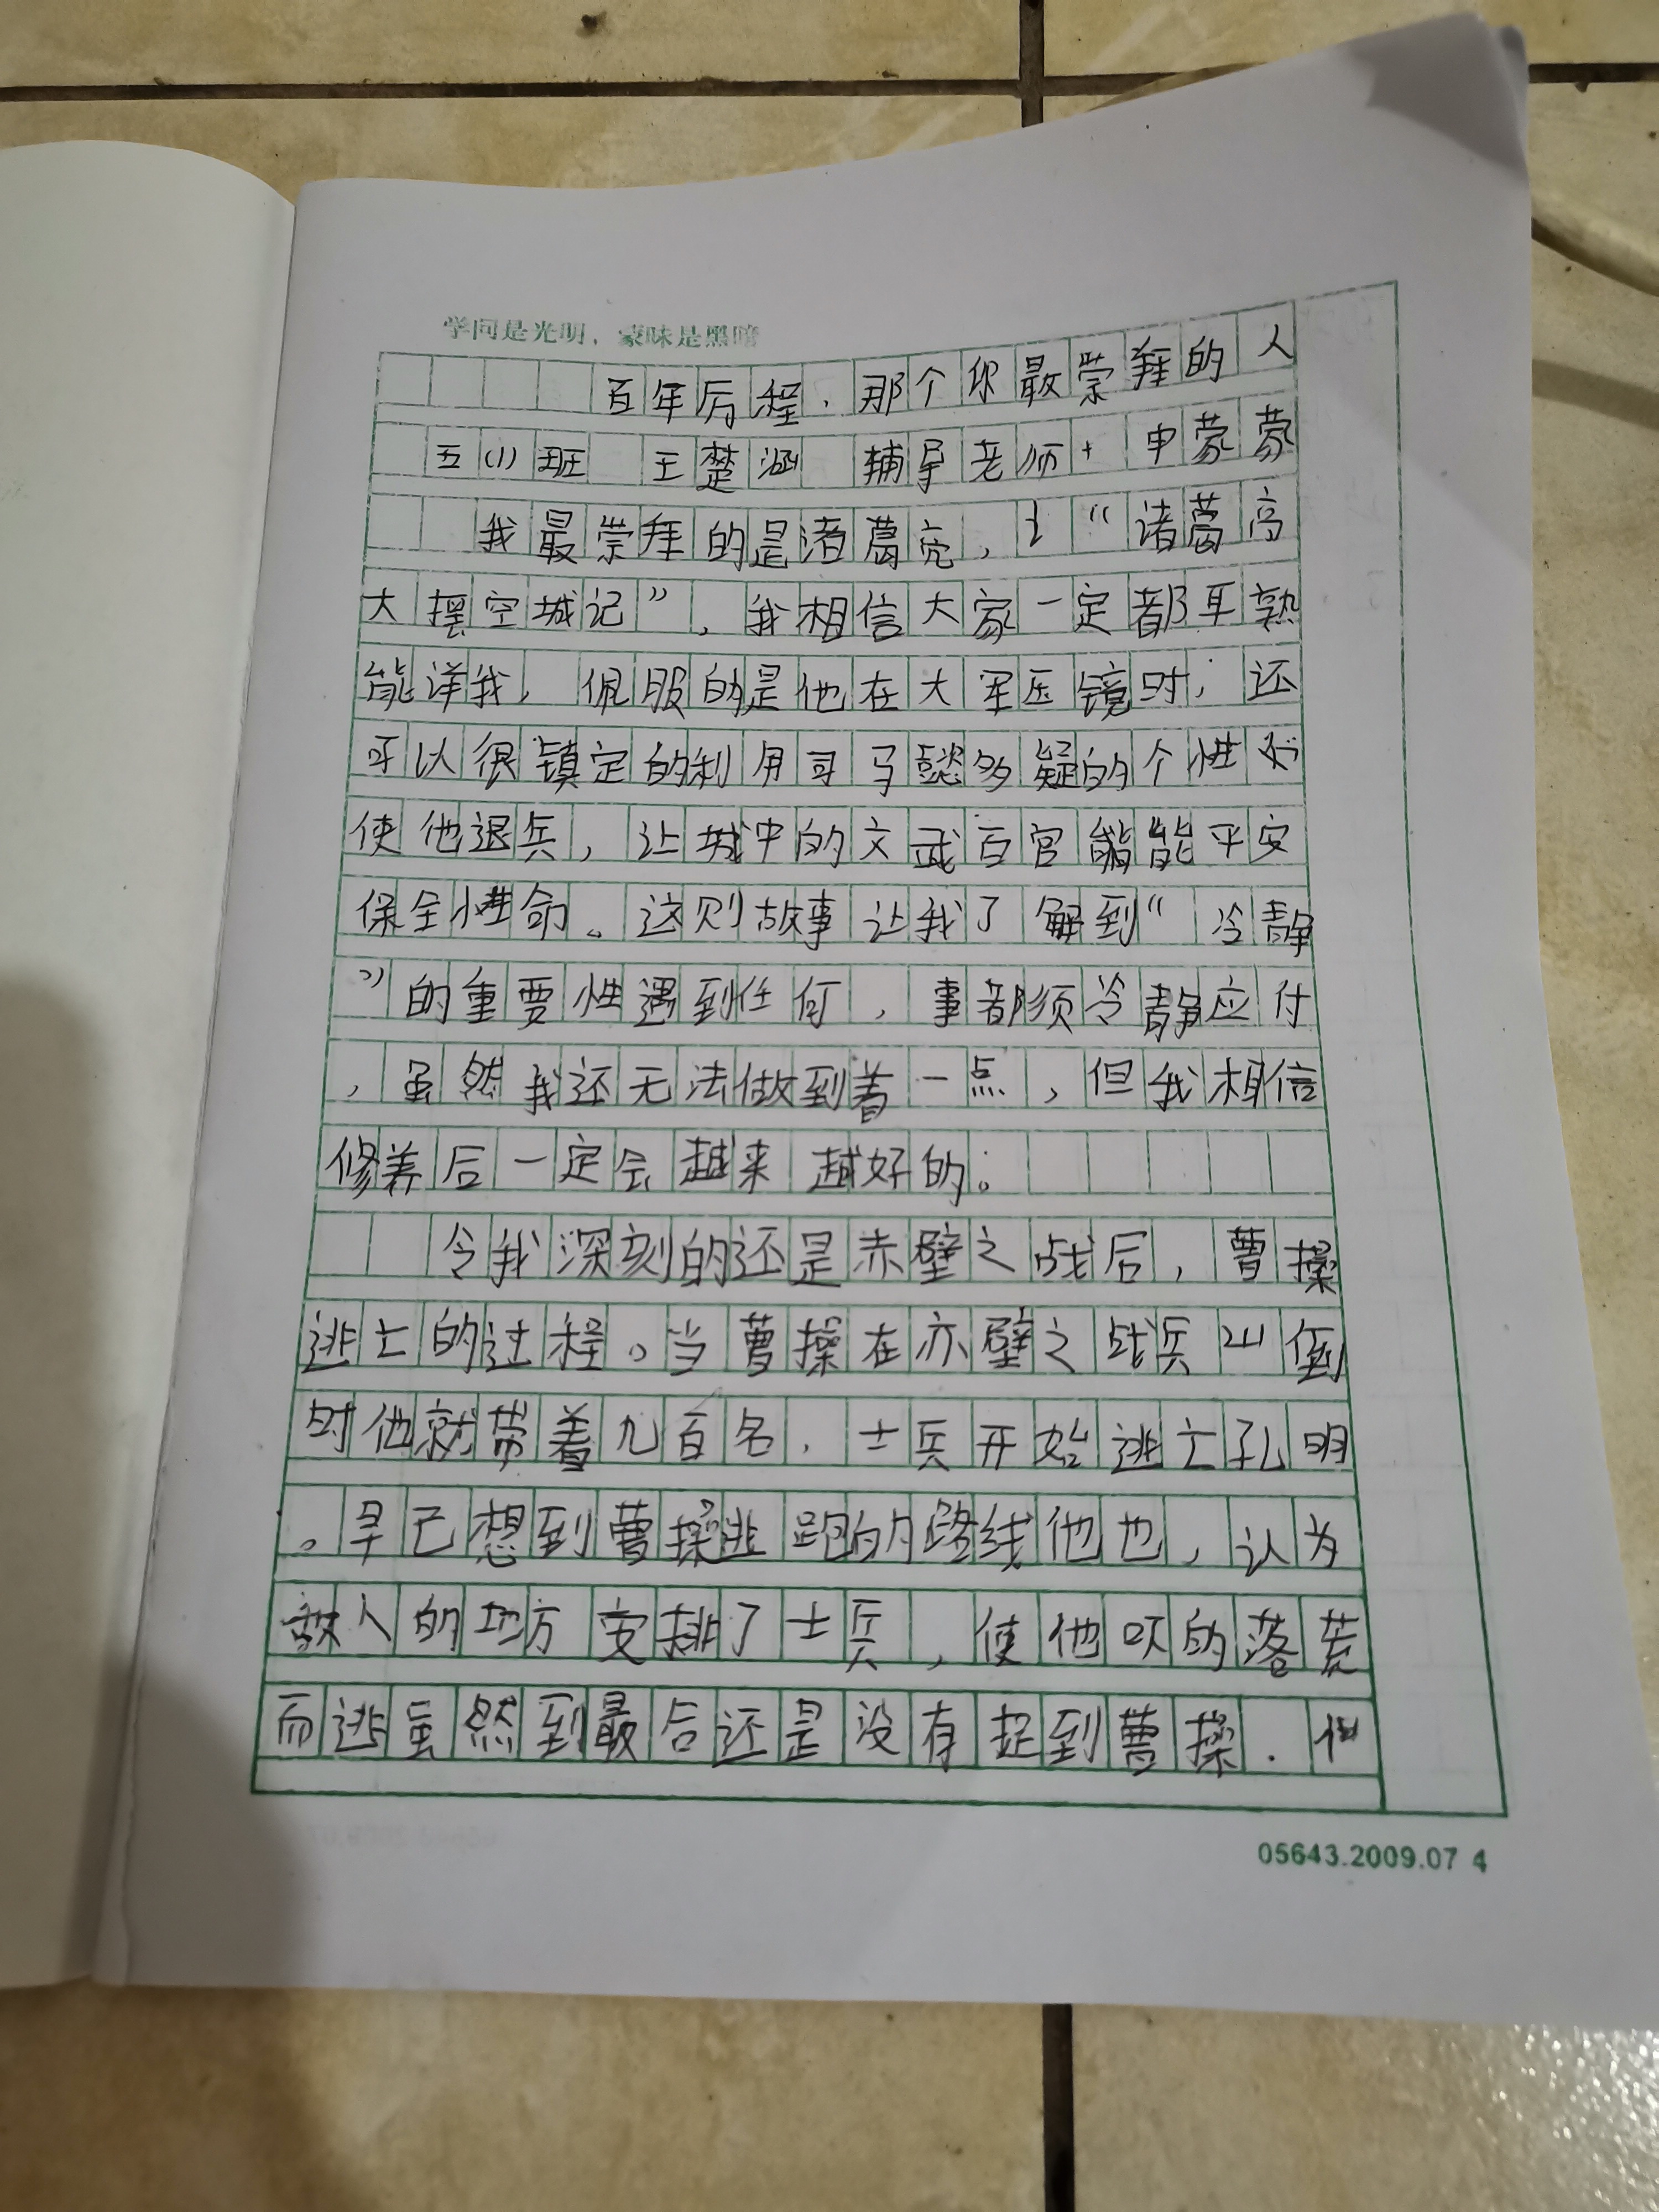 学问是光明，蒙昧是黑暗
百年历程，那个你最崇拜的人
五(1)班 王楚涵 辅导老师 申蒙蒙
我最崇拜的是诸葛亮，“诸葛高
大摆空城记”，我相信大家一定都耳熟
能详我，佩服的是他在大军压镜时，还
可以很镇定的利用司马懿多疑的个性
使他退兵，让城中的文武百官能能平安
保全性命。这则故事让我了解到“冷静
”的重要性遇到任何，事都须冷静应付
，虽然我还无法做到着一点，但我相信
修养后一定会越来越好的。
令我深刻的还是赤壁之战后，曹操
逃亡的过程。当曹操在亦壁之战兵山倒
时他就带着九百名，士兵开始逃亡孔明
。早已想到曹操逃跑的路线他也，认为
敌人的地方安排了士兵，使他吓的落荒
而逃虽然到最后还是没有捉到曹操．但
05643.2009.07 4